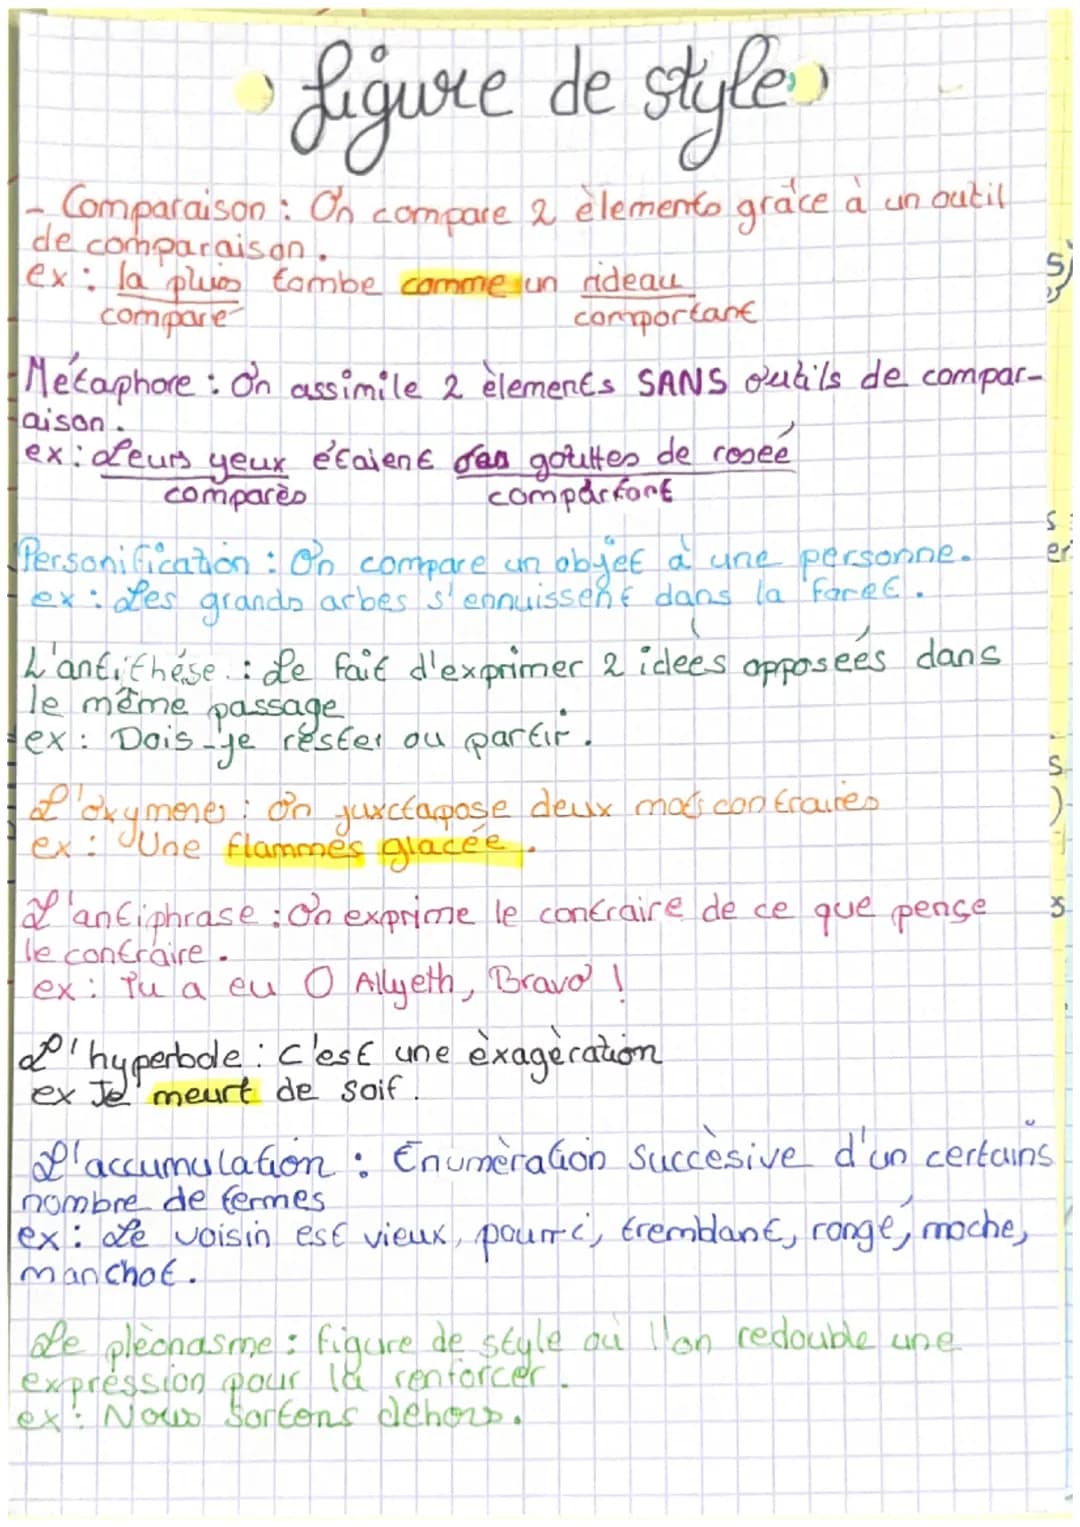 figure de style
- Comparaison : On compare 2 èlements grâce à un outil
de comparaison.
ex : la pluis tombe comme un rideau
comparé comportant
Métaphore : On assimile 2 èlements SANS outils de compar-
aison.
ex : Leurs yeux étaient des gouttes de roseé
comparès comportant
Personification : On compare un objet à une personne.
ex : Les grands arbes s'ennuissent dans la Foret.
L'antithése : Le fait d'exprimer 2 ideés opposeés dans
le même passage
ex : Dois-je rester ou partir.
L'oxymenes : On juxctapose deux mots contraires
ex : Une flammes glacée.
L'antiphrase : On exprime le contraire de ce que pense
le contraire.
ex : Tu a eu 0 Allyeth, Bravo !
L'hyperbole : C'est une èxagèration
ex Je meurt de soif.
L'accumulation : Enumèration succèsive d'un certains
nombre de termes
ex : Le voisin est vieux, pourri, tremblant, rongé, moche,
manchot.
Le plèonasme : figure de style où l'on redouble une
expression pour la renforcer.
ex : Nous sortons dehors.